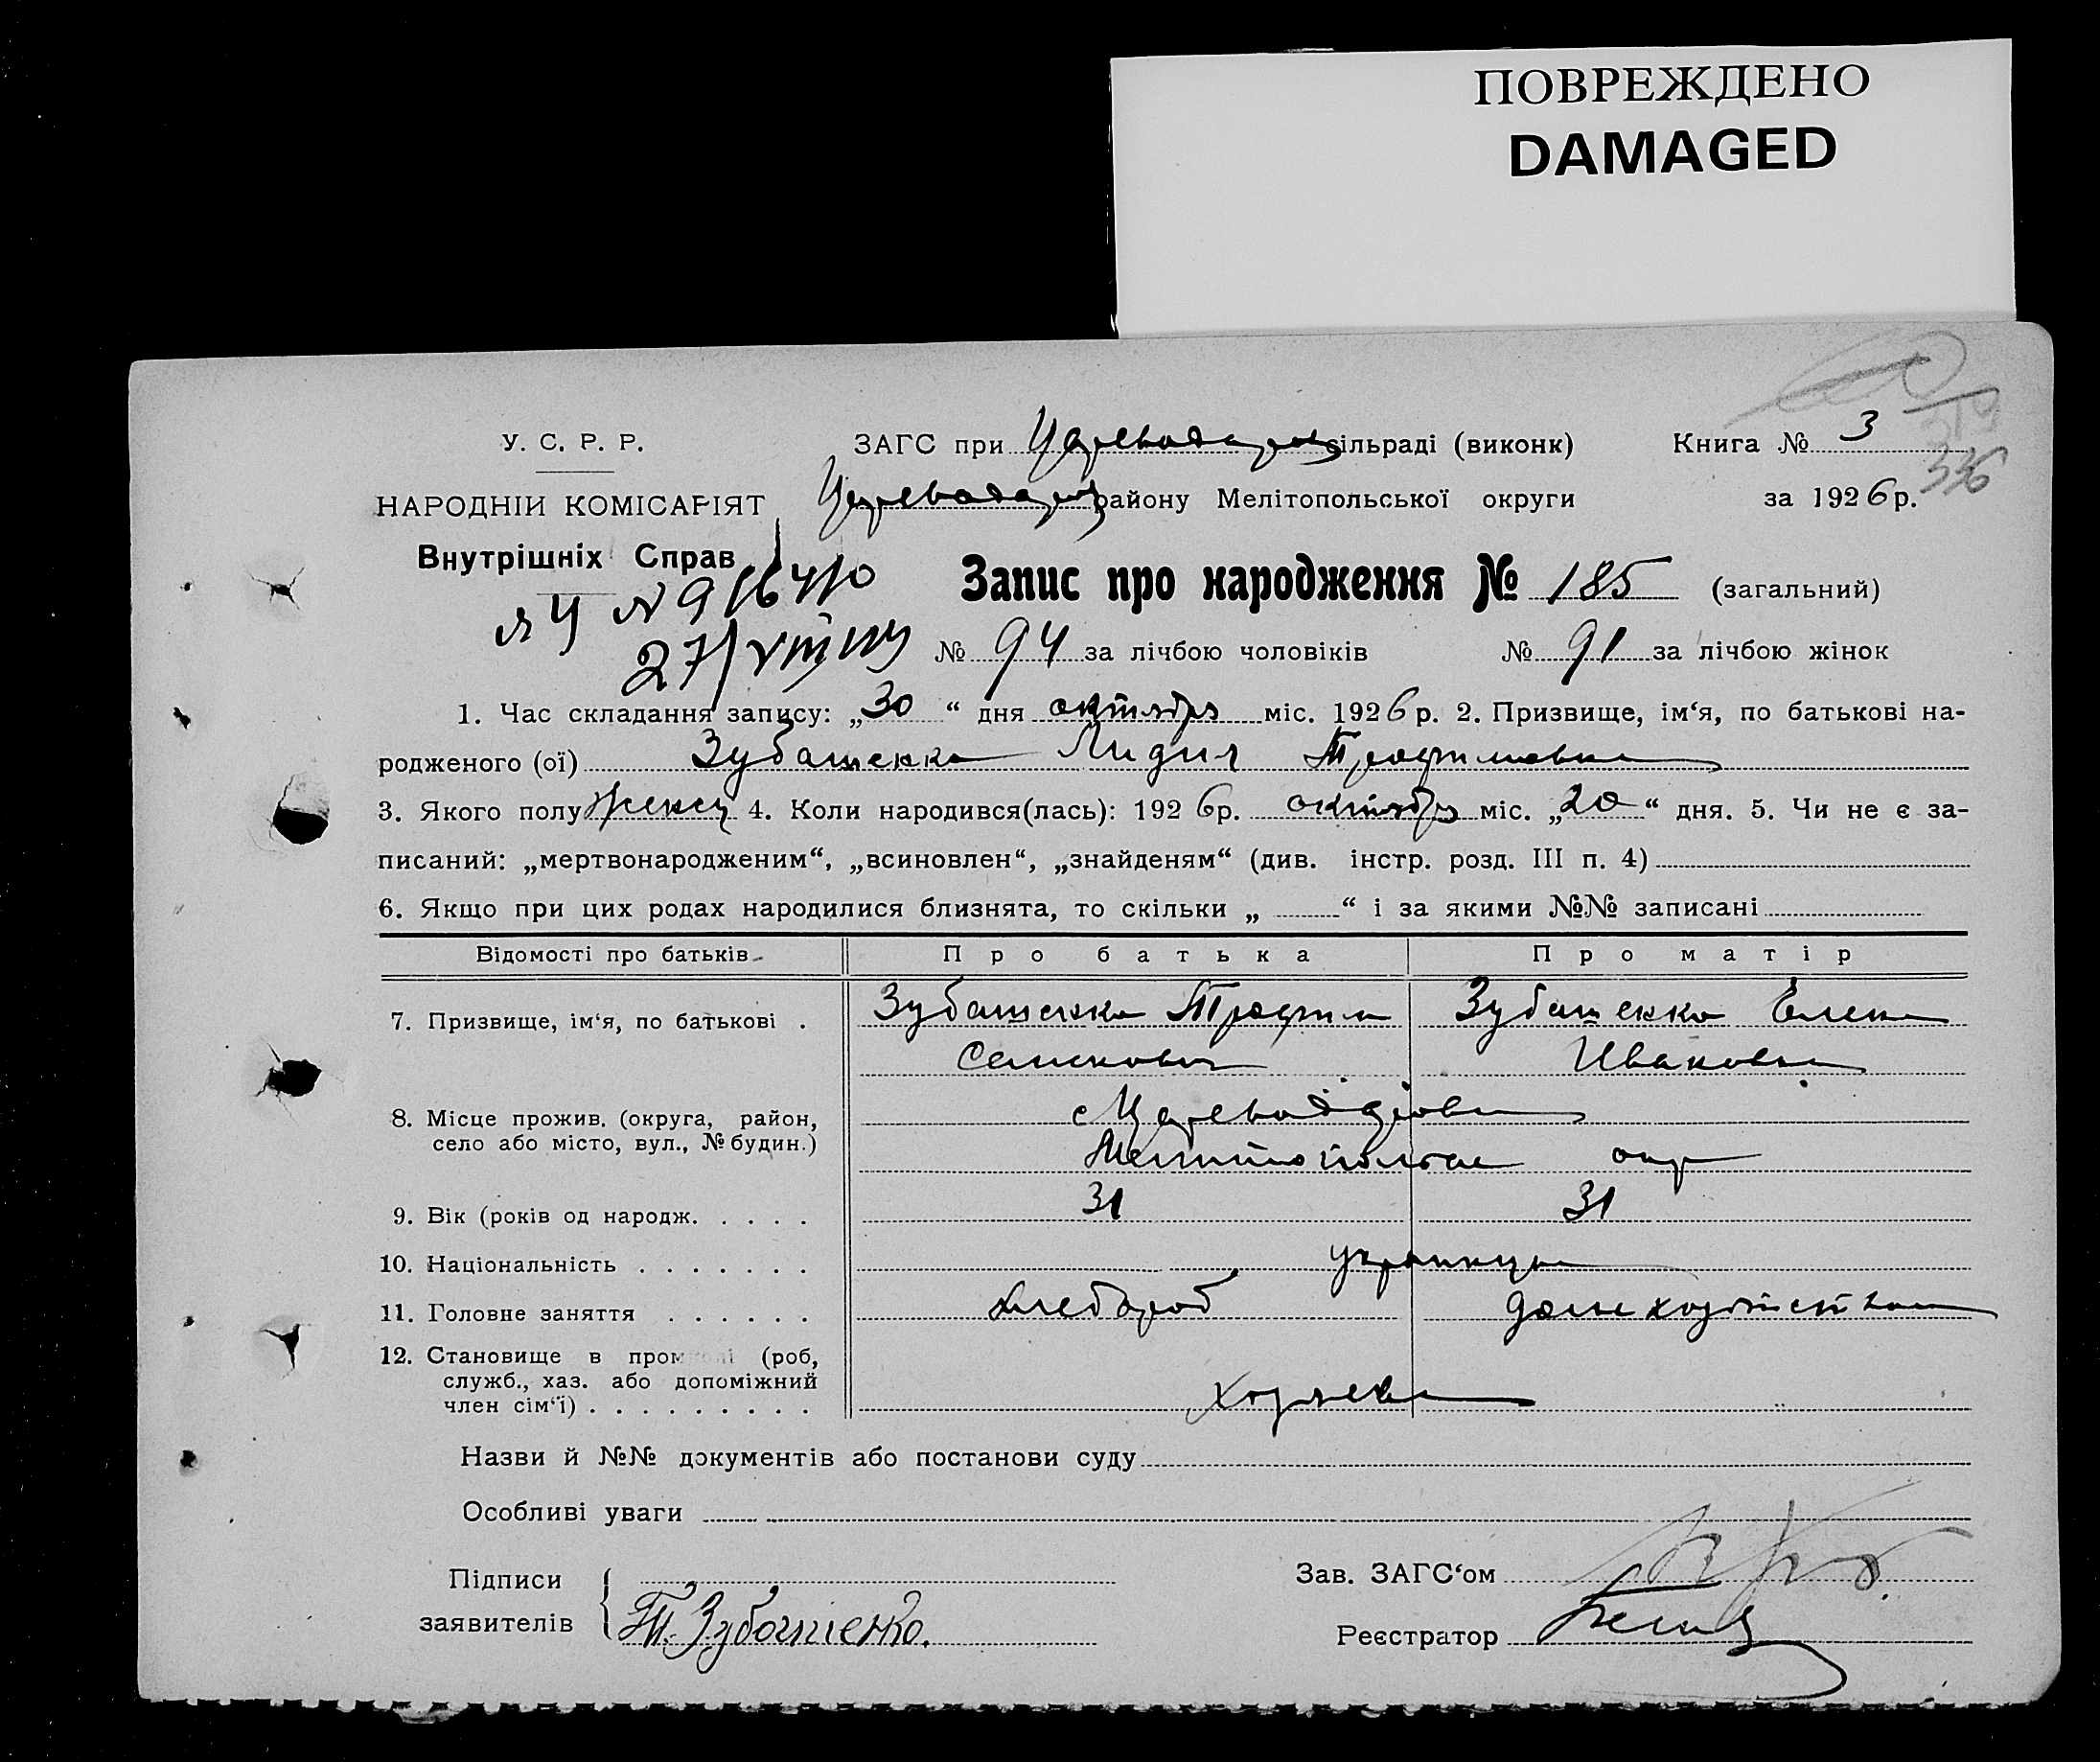 ПОВРЕЖДЕНО
DAMAGED
У. С. Р. Р.
ЗАГС при сільраді (виконк)
Книга № 3
336
НАРОДНІЙ КОМІСАРІЯТ
району Мелітопольської округи
за 1926 р.
Внутрішніх Справ
Запис про народження № 185 (загальний)
№ 94 за лічбою чоловіків № 91 за лічбою жінок
1. Час складання запису: „30“ дня октября міс. 1926 р. 2. Призвище, ім‘я, по батькові на-
родженого (ої) Зубашенко Лидия Трофимовна
3. Якого полу женск 4. Коли народився(лась): 1926р. октябр міс. „20“ дня. 5. Чи не є за-
писаний: „мертвонародженим“, „всиновлен“, „знайденям“ (див. інстр. розд. III п. 4)
6. Якщо при цих родах народилися близнята, то скільки „ “ і за якими №№ записані
Відомості про батьків Про батька Про матір
7. Призвище, ім‘я, по батькові . Зубашенко Трофим Зубашенко Елена
Семенович Ивановна
8. Місце прожив. (округа, район,
село або місто, вул., № будин.)
окр
9. Вік (років од народж. . . . . 31 31
10. Національність . . . . . . . украинцы
11. Головне заняття . . . . . . хлебороб домохозяйка
12. Становище в пром (роб,
служб., хаз. або допоміжний
член сім‘ї) . . . . . . . . . хозяева
Назви й №№ документів або постанови суду
Особливі уваги
Підписи
заявителів Т. Зубашенко.
Зав. ЗАГС‘ом
Реєстратор